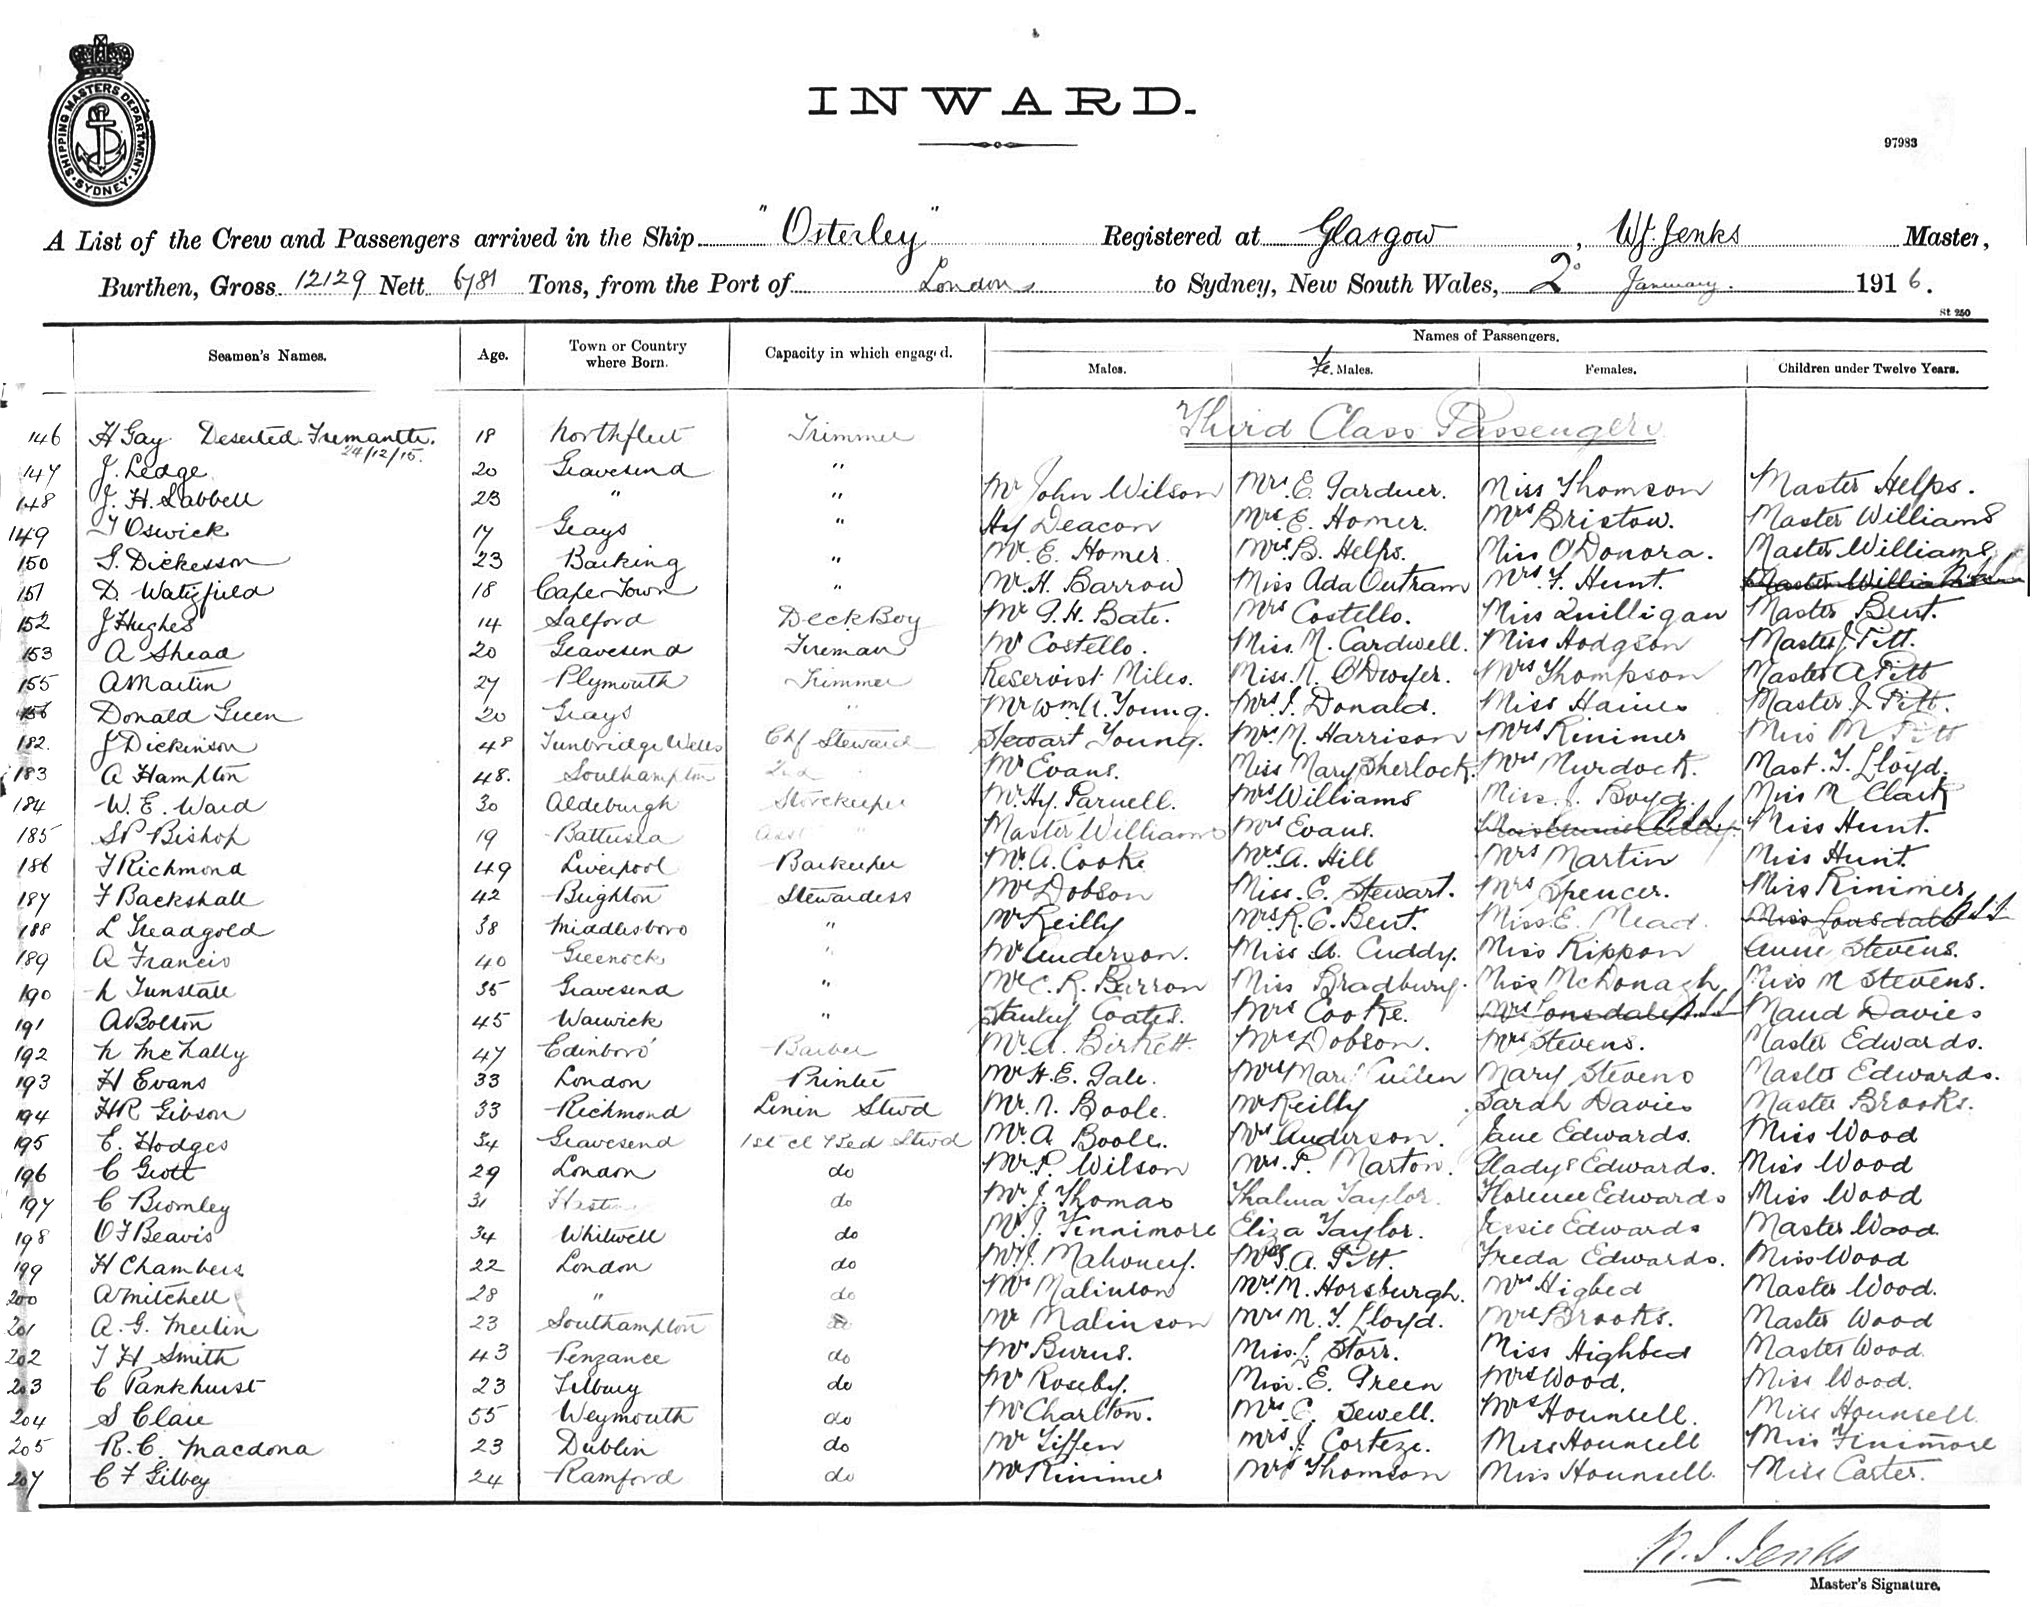 SHIPPING MASTERS DEPARTMENT. SYDNEY.
INWARD.
97983
A List of the Crew and Passengers arrived in the Ship "Osterley" Registered at Glasgow, W.J. Jenks Master,
Burthen, Gross 12129 Nett 6781 Tons, from the Port of London to Sydney, New South Wales, 2 January. 1916.
St 250
Seamen's Names. Age. Town or Country where Born. Capacity in which engaged. Names of Passengers.
Males. Fe. Males. Females. Children under Twelve Years.
146 H Gay Deserted Fremantle. 24/12/15. 18 Northfleet Trimmer Third Class Passengers
147 J. Ledge 20 Gravesend "
148 J. H. Sabbell 23 " " Mr John Wilson Mrs. E. Gardner. Miss Thomson Master Helps.
149 T Oswick 17 Grays " Hy Deacon Mrs. E. Homer. Mrs Bristow. Master Williams
150 G. Dickesson 23 Barking " Mr. E. Homer. Mrs. B. Helps. Miss O'Donora. Master Williams
151 D. Watifield 18 Cape Town " Mr. H. Barrow Miss Ada Outram Mrs. F. Hunt.
152 J Hughes 14 Salford Deck Boy Mr. G. H. Bate. Mrs Costello. Miss Quilligan Master Bent.
153 A Shead 20 Gravesend Fireman Mr Costello. Miss. M. Cardwell. Miss Hodgson Master J Pitt.
155 A Martin 27 Plymouth Trimmer Reservist Miles. Miss. N. O'Dwyer. Mrs Thompson Master A Pitt
156 Donald Green 20 Grays " Mr Wm. A. Young. Mrs. J. Donald. Miss Haines Master J. Pitt.
182. J Dickinson 48 Tunbridge Wells Chf Steward Stewart Young. Mrs. N. Harrison Mrs Rinimer Miss M Pitt
183 A Hampton 48. Southampton 2nd " Mr Evans. Miss Mary Sherlock. Mrs Murdock. Mast. T. Lloyd.
184 W. E. Ward 30 Aldeburgh Storekeeper Mr. Hy. Parnell. Mrs Williams Miss. J. Boyd. Miss M Clark
185 S P Bishop 19 Battersea Asst " Master Williams Mrs Evans. Miss Hunt.
186 T Richmond 49 Liverpool Barkeeper Mr. A. Cooke Mrs. A. Hill Mrs Martin Miss Hunt.
187 F Backshall 42 Brighton Stewardess Mr Dobson Miss. C. Stewart. Mrs Spencer. Miss Rinimer
188 L Treadgold 38 Middlesboro " Mr Reilly Mrs. R. C. Bent. Miss. E. Mead. Miss Lonsdale
189 A Francis 40 Greenock " Mr Anderson. Miss A. Cuddy. Miss Rippon Annie Stevens.
190 L Tunstall 35 Gravesend " Mr C. R. Barron Miss Bradbury. Miss McDonagh Miss M Stevens.
191 A Bolton 45 Warwick " Stanley Coates. Mrs Cooke. Mrs Lonsdale Maud Davies
192 N McNally 47 Edinboro' Barber Mr. A. Birkett. Mrs Dobson. Mrs Stevens. Master Edwards.
193 H Evans 33 London Printer Mr H. E. Gale. Mrs Mary Cullen Mary Stevens Master Edwards.
194 H R Gibson 33 Richmond Linen Stwd Mr. N. Boole. Mrs Reilly Sarah Davies Master Brooks.
195 E. Hodges 34 Gravesend 1st cl Bed Stwd Mr. A. Boole. Mrs Anderson. Jane Edwards. Miss Wood
196 C Grott 29 London do Mr. P. Wilson Mrs. P. Marton. Gladys Edwards. Miss Wood
197 C Bromley 31 do Mr. J. Thomas Thalma Taylor. Florence Edwards Miss Wood
198 O F Beavis 34 Whitwell do Mr. J. Finnimore Eliza Taylor. Jessie Edwards Master Wood
199 H Chambers 22 London do Mr. J. Mahoney. Mrs G. A. Pitt. Freda Edwards. Miss Wood
200 A Mitchell 28 " do Mr Malinson Mrs. M. Horsburgh. Mrs Higbed Master Wood.
201 A. G. Merlin 23 Southampton do Mr Malinson Mrs M. T. Lloyd. Mrs Brooks. Master Wood
202 T H Smith 43 Penzance do Mr Burns. Miss. L. Storr. Miss Highbed Master Wood
203 C Pankhurst 23 Tilbury do Mr Roseby. Miss. E. Green Mrs Wood. Miss Wood.
204 S Clare 55 Weymouth do Mr Charlton. Mrs. C. Sewell. Mrs Hounsell. Miss Hounsell
205 R. C. Macdona 23 Dublin do Mr Tiffen Mrs. J. Corteze. Miss Hounsell Miss Finimore
207 C F Gilbey 24 Ramford do Mr Rinimer Mrs Thomson Miss Hounsell. Miss Carter.
W. J. Jenks
Master's Signature.